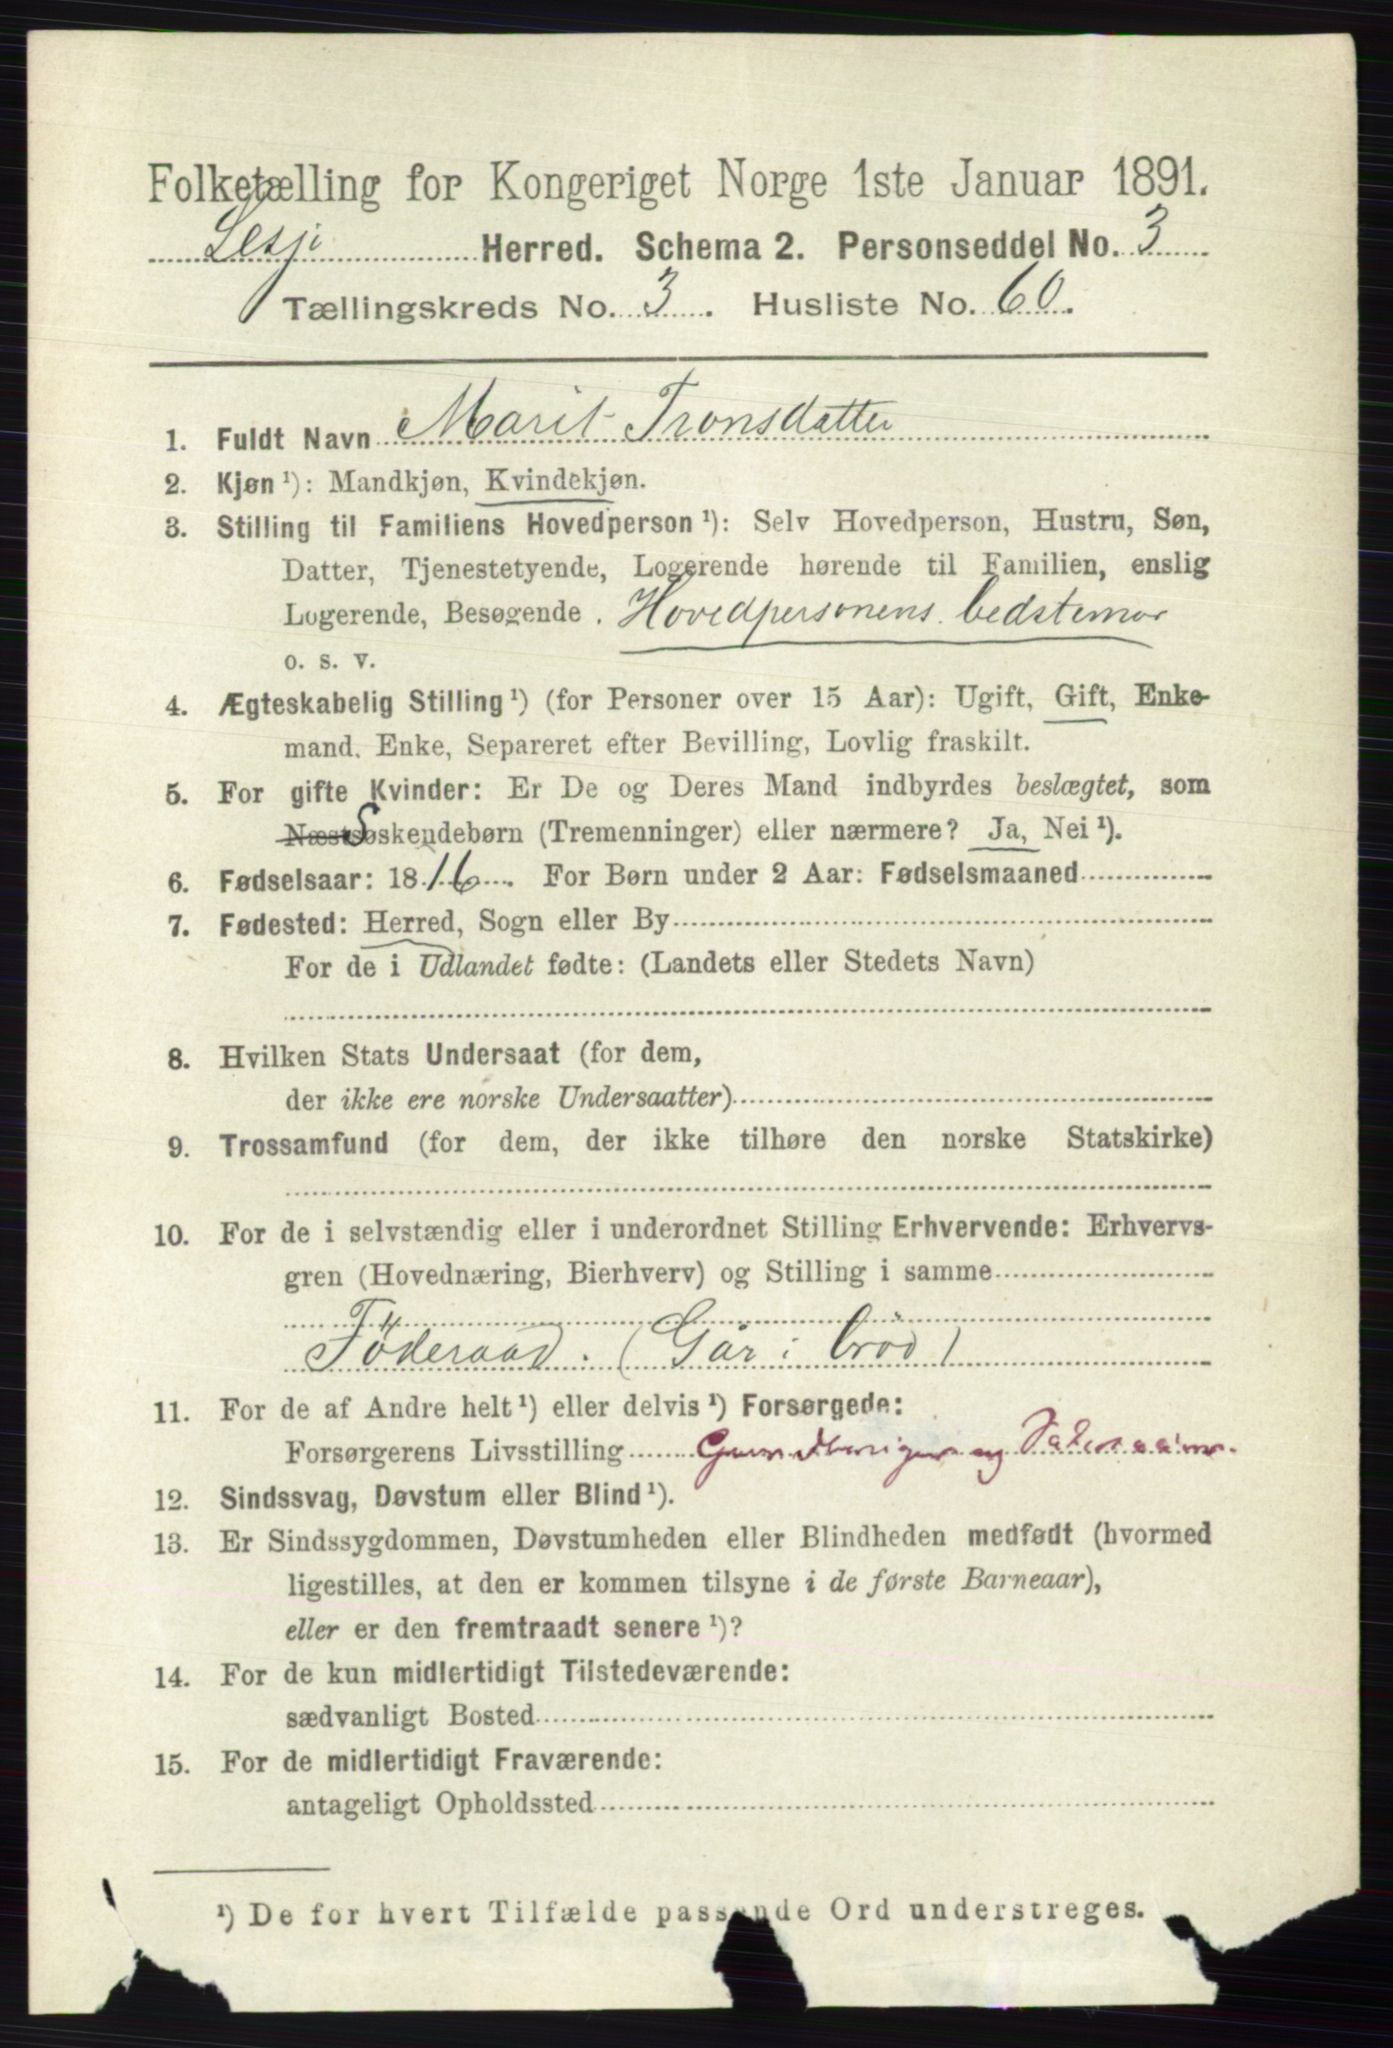 Folketælling for Kongeriget Norge 1ste Januar 1891.
Lesje Herred. Schema 2. Personseddel No. 3
Tællingskreds No. 3. Husliste No. 60.
1. Fuldt Navn Marit Tronsdatter
2. Kjøn ¹): Mandkjøn, Kvindekjøn.
3. Stilling til Familiens Hovedperson ¹): Selv Hovedperson, Hustru, Søn,
Datter, Tjenestetyende, Logerende hørende til Familien, enslig
Logerende, Besøgende . Hovedpersonens bedstemor
o. s. v.
4. Ægteskabelig Stilling ¹) (for Personer over 15 Aar): Ugift, Gift, Enke-
mand, Enke, Separeret efter Bevilling, Lovlig fraskilt.
5. For gifte Kvinder: Er De og Deres Mand indbyrdes beslægtet, som
NæstSøskendebørn (Tremenninger) eller nærmere? Ja, Nei ¹).
6. Fødselsaar: 1816. For Børn under 2 Aar: Fødselsmaaned
7. Fødested: Herred, Sogn eller By
For de i Udlandet fødte: (Landets eller Stedets Navn)
8. Hvilken Stats Undersaat (for dem,
der ikke ere norske Undersaatter)
9. Trossamfund (for dem, der ikke tilhøre den norske Statskirke)
10. For de i selvstændig eller i underordnet Stilling Erhvervende: Erhvervs-
gren (Hovednæring, Bierhverv) og Stilling i samme
Föderaad. (Går i brød)
11. For de af Andre helt ¹) eller delvis ¹) Forsørgede:
Forsørgerens Livsstilling og
12. Sindssvag, Døvstum eller Blind ¹).
13. Er Sindssygdommen, Døvstumheden eller Blindheden medfødt (hvormed
ligestilles, at den er kommen tilsyne i de første Barneaar),
eller er den fremtraadt senere ¹)?
14. For de kun midlertidigt Tilstedeværende:
sædvanligt Bosted
15. For de midlertidigt Fraværende:
antageligt Opholdssted
¹) De for hvert Tilfælde passende Ord understreges.